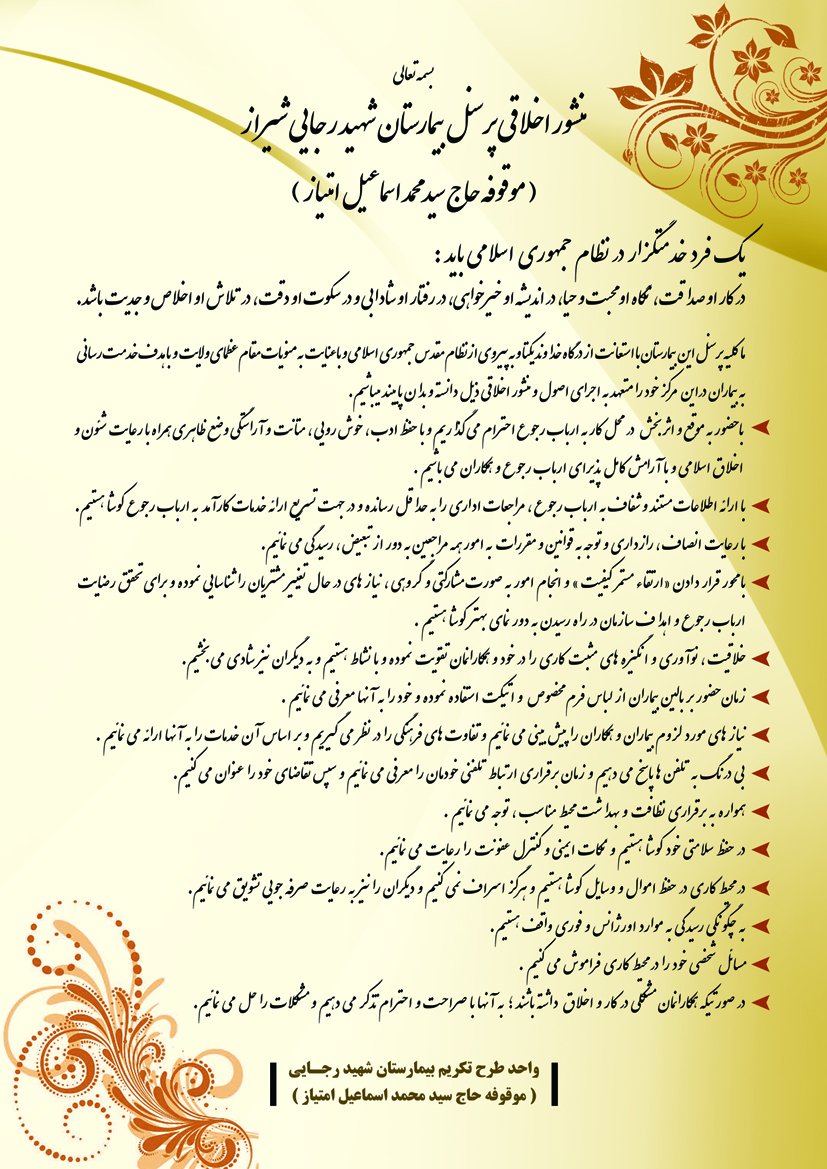 بسمه تعالی
منشور اخلاقی پرسنل بیمارستان شهید رجایی شیراز
( موقوفه حاج سید محمد اسماعیل امتیاز )
یک فرد خدمتگزار در نظام جمهوری اسلامی باید :
در کار او صداقت، نگاه او محبت و حیا، در اندیشه او خیرخواهی، در رفتار او شادابی و در سکوت او دقت، در تلاش او اخلاص و جدیت باشد.
ما کلیه پرسنل این بیمارستان با استعانت از درگاه خداوند یکتا و به پیروی از نظام مقدس جمهوری اسلامی و با عنایت به منویات مقام عظمای ولایت و با هدف خدمت رسانی
به بیماران در این مرکز خود را متعهد به اجرای اصول و منشور اخلاقی ذیل دانسته و بدان پایبند میباشیم.
با حضور به موقع و اثر بخش در محل کار به ارباب رجوع احترام می گذاریم و با حفظ ادب، خوش رویی، متانت و آراستگی وضع ظاهری همراه با رعایت شئون و
اخلاق اسلامی و با آرامش کامل پذیرای ارباب رجوع و همکاران می باشیم .
با ارائه اطلاعات مستند و شفاف به ارباب رجوع ، مراجعات اداری را به حداقل رسانده و در جهت تسریع ارائه خدمات کارآمد به ارباب رجوع کوشا هستیم.
با رعایت انصاف، رازداری و توجه به قوانین و مقررات به امور همه مراجعین به دور از تبعیض ، رسیدگی می نمائیم.
با محور قرار دادن «ارتقاء مستمر کیفیت » و انجام امور به صورت مشارکتی و گروهی ، نیاز های در حال تغییر مشتریان را شناسایی نموده و برای تحقق رضایت
ارباب رجوع و اهداف سازمان در راه رسیدن به دور نمای بهتر کوشا هستیم .
خلاقیت ، نوآوری و انگیزه های مثبت کاری را در خود و همکارانمان تقویت نموده و با نشاط هستیم و به دیگران نیز شادی می بخشیم.
زمان حضور بر بالین بیماران از لباس فرم مخصوص و اتیکت استفاده نموده و خود را به آنها معرفی می نمائیم .
نیاز های مورد لزوم بیماران و همکاران را پیش بینی می نمائیم و تفاوت های فرهنگی را در نظر می گیریم و بر اساس آن خدمات را به آنها ارائه می نمائیم .
بی درنگ به تلفن ها پاسخ می دهیم و زمان برقراری ارتباط تلفنی خودمان را معرفی می نمائیم و سپس تقاضای خود را عنوان می کنیم.
همواره به برقراری نظافت و بهداشت محیط مناسب ، توجه می نمائیم .
در حفظ سلامتی خود کوشا هستیم و نکات ایمنی و کنترل عفونت را رعایت می نمائیم.
در محیط کاری در حفظ اموال و وسایل کوشا هستیم و هرگز اسراف نمی کنیم و دیگران را نیز به رعایت صرفه جویی تشویق می نمائیم.
به چگونگی رسیدگی به موارد اورژانس و فوری واقف هستیم.
مسائل شخصی خود را در محیط کاری فراموش می کنیم .
در صورتیکه همکارانمان مشکلی در کار و اخلاق داشته باشند ؛ به آنها با صراحت و احترام تذکر می دهیم و مشکلات را حل می نمائیم.
واحد طرح تکریم بیمارستان شهید رجــایی
( موقوفه حاج سید محمد اسماعیل امتیاز )